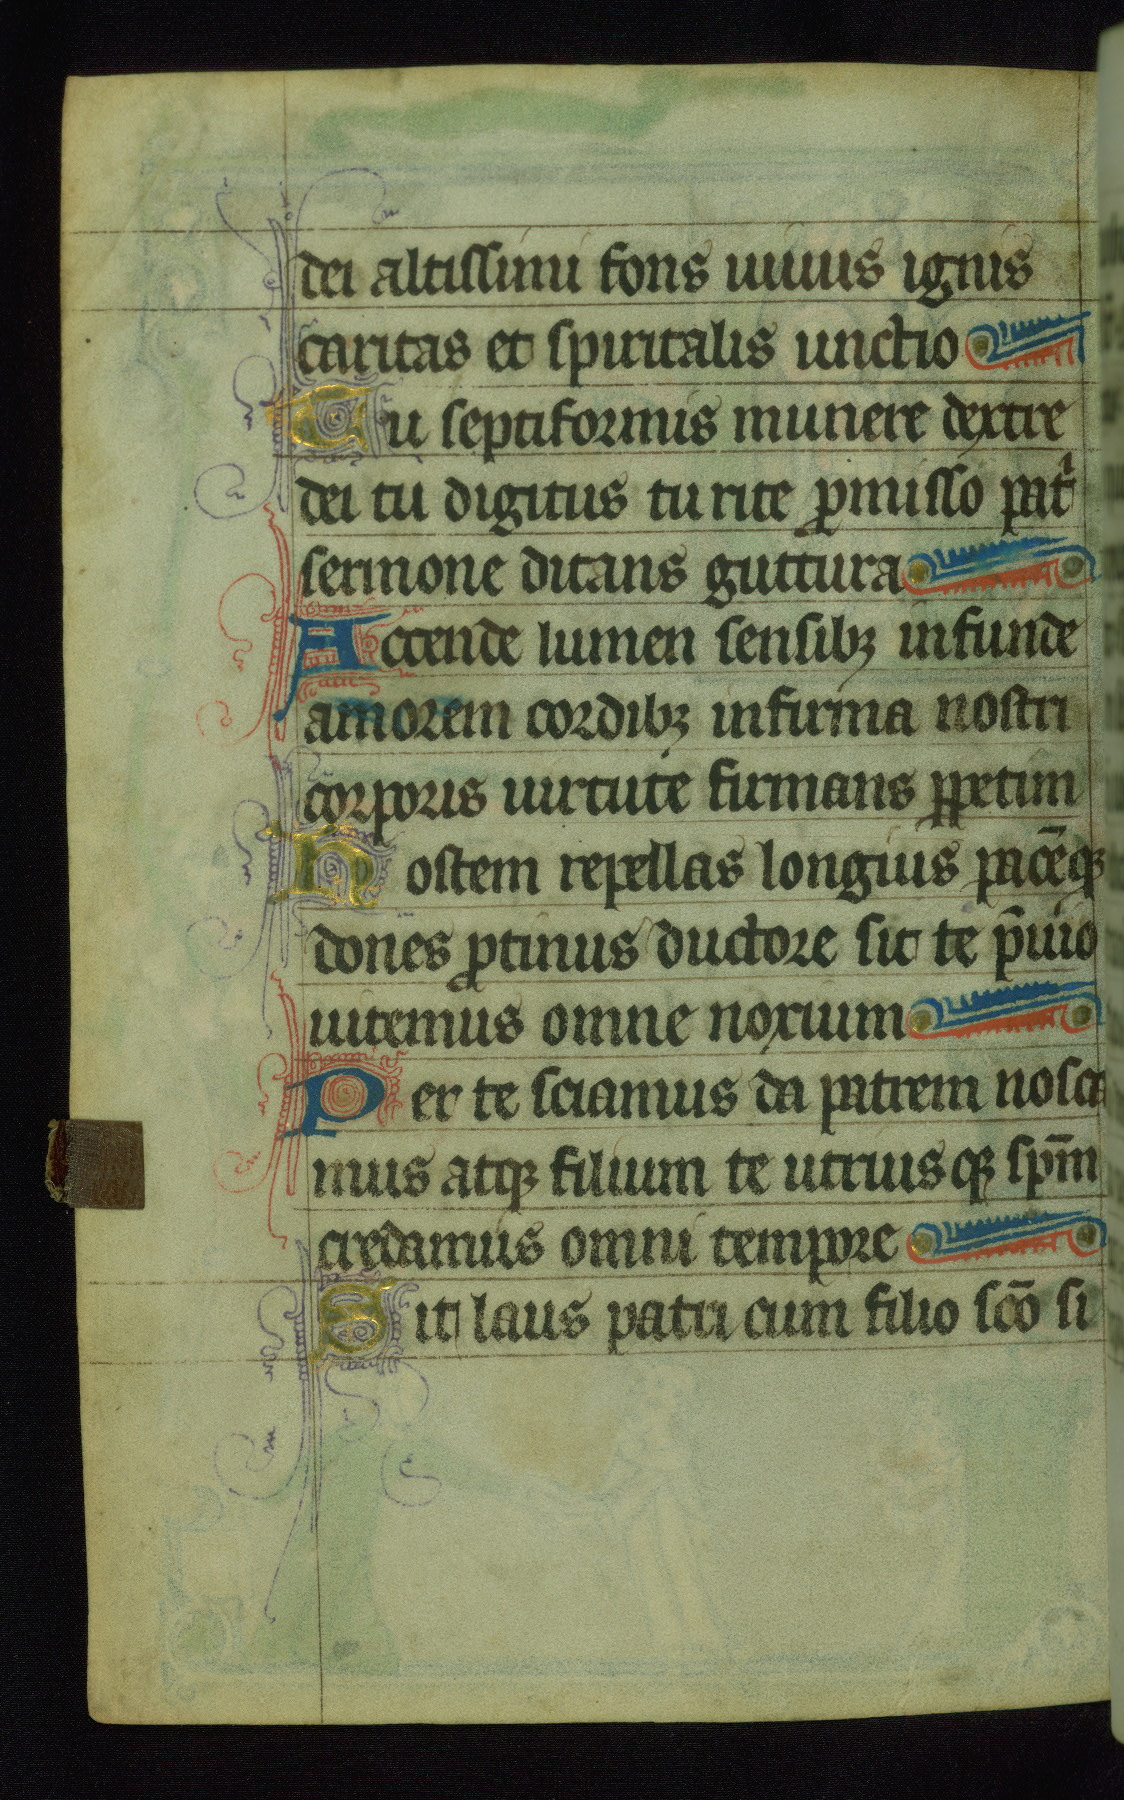 dei altissimi fons uiuus ignis
caritas et spiritalis unctio
Tu septiformis munere dextre
dei tu digitus tu rite ꝓmisso patͥ
sermone ditans guttura
Accende lumen sensibꝫ infunde
amorem cordibꝫ infirma nostri
corporis uirtute firmans ꝑpetim
Hostem repellas longius pacēqꝫ
dones ꝓtinus ductore sic te p̄uio
uitemus omne noxium
Per te sciamus da patrem nosca
mus atqꝫ filium te utriusqꝫ sp̄m
credamus omni tempore
Sit laus patri cum filio sc̄o si